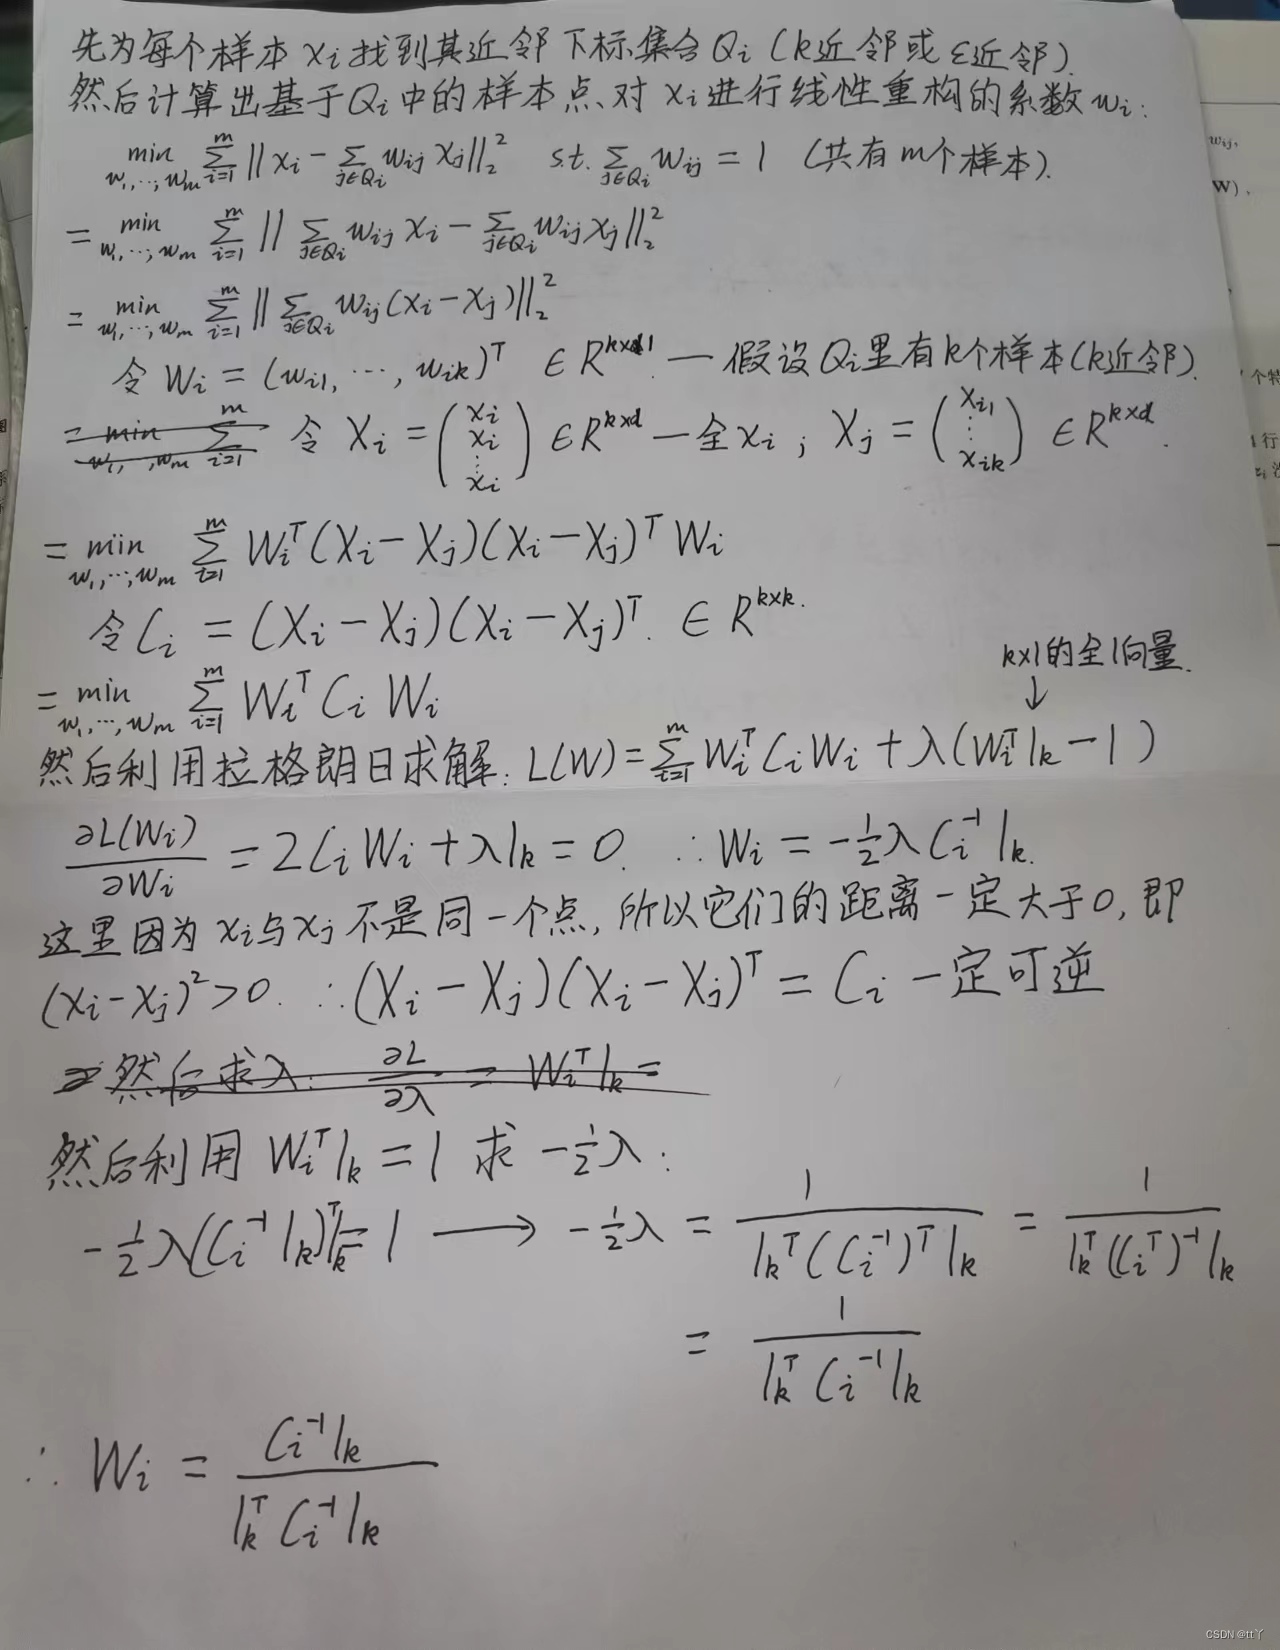 先为每个样本 xi 找到其近邻下标集合 Qi (k近邻或 ε近邻).
然后计算出基于Qi中的样本点对 xi 进行线性重构的系数 wi:
min_{w1,…,wm} Σ_{i=1}^{m} ‖xi − Σ_{j∈Qi} wij xj‖₂² s.t. Σ_{j∈Qi} wij = 1 (共有m个样本).
= min_{w1,…,wm} Σ_{i=1}^{m} ‖Σ_{j∈Qi} wij xi − Σ_{j∈Qi} wij xj‖₂²
= min_{w1,…,wm} Σ_{i=1}^{m} ‖Σ_{j∈Qi} wij (xi − xj)‖₂²
令 Wi = (wi1, …, wik)^T ∈ R^{k×1} — 假设Qi里有k个样本(k近邻).
= min_{w1, ,wm} Σ_{i=1}^{m} 令 Xi = (xi xi ⋮ xi) ∈ R^{k×d} — 全xi ; Xj = (xi1 ⋮ xik) ∈ R^{k×d}.
= min_{w1,…,wm} Σ_{i=1}^{m} Wi^T (Xi − Xj)(Xi − Xj)^T Wi
令 Ci = (Xi − Xj)(Xi − Xj)^T. ∈ R^{k×k}.
k×1的全1向量.
↓
= min_{w1,…,wm} Σ_{i=1}^{m} Wi^T Ci Wi
然后利用拉格朗日求解: L(W) = Σ_{i=1}^{m} Wi^T Ci Wi + λ(Wi^T 1k − 1)
∂L(Wi)/∂Wi = 2Ci Wi + λ1k = 0. ∴ Wi = −½λ Ci^{-1} 1k.
这里因为 xi与xj 不是同一个点, 所以它们的距离一定大于0, 即
(xi − xj)² > 0. ∴ (Xi − Xj)(Xi − Xj)^T = Ci 一定可逆
然后求λ: ∂L/∂λ = Wi^T 1k =
然后利用 Wi^T 1k = 1 求 −½λ:
−½λ(Ci^{-1} 1k)^T 1k = 1 ⟶ −½λ = 1/(1k^T (Ci^{-1})^T 1k) = 1/(1k^T (Ci^T)^{-1} 1k)
= 1/(1k^T Ci^{-1} 1k)
∴ Wi = Ci^{-1} 1k/(1k^T Ci^{-1} 1k)
wij,
W),
个特
行
CSDN @tt丫